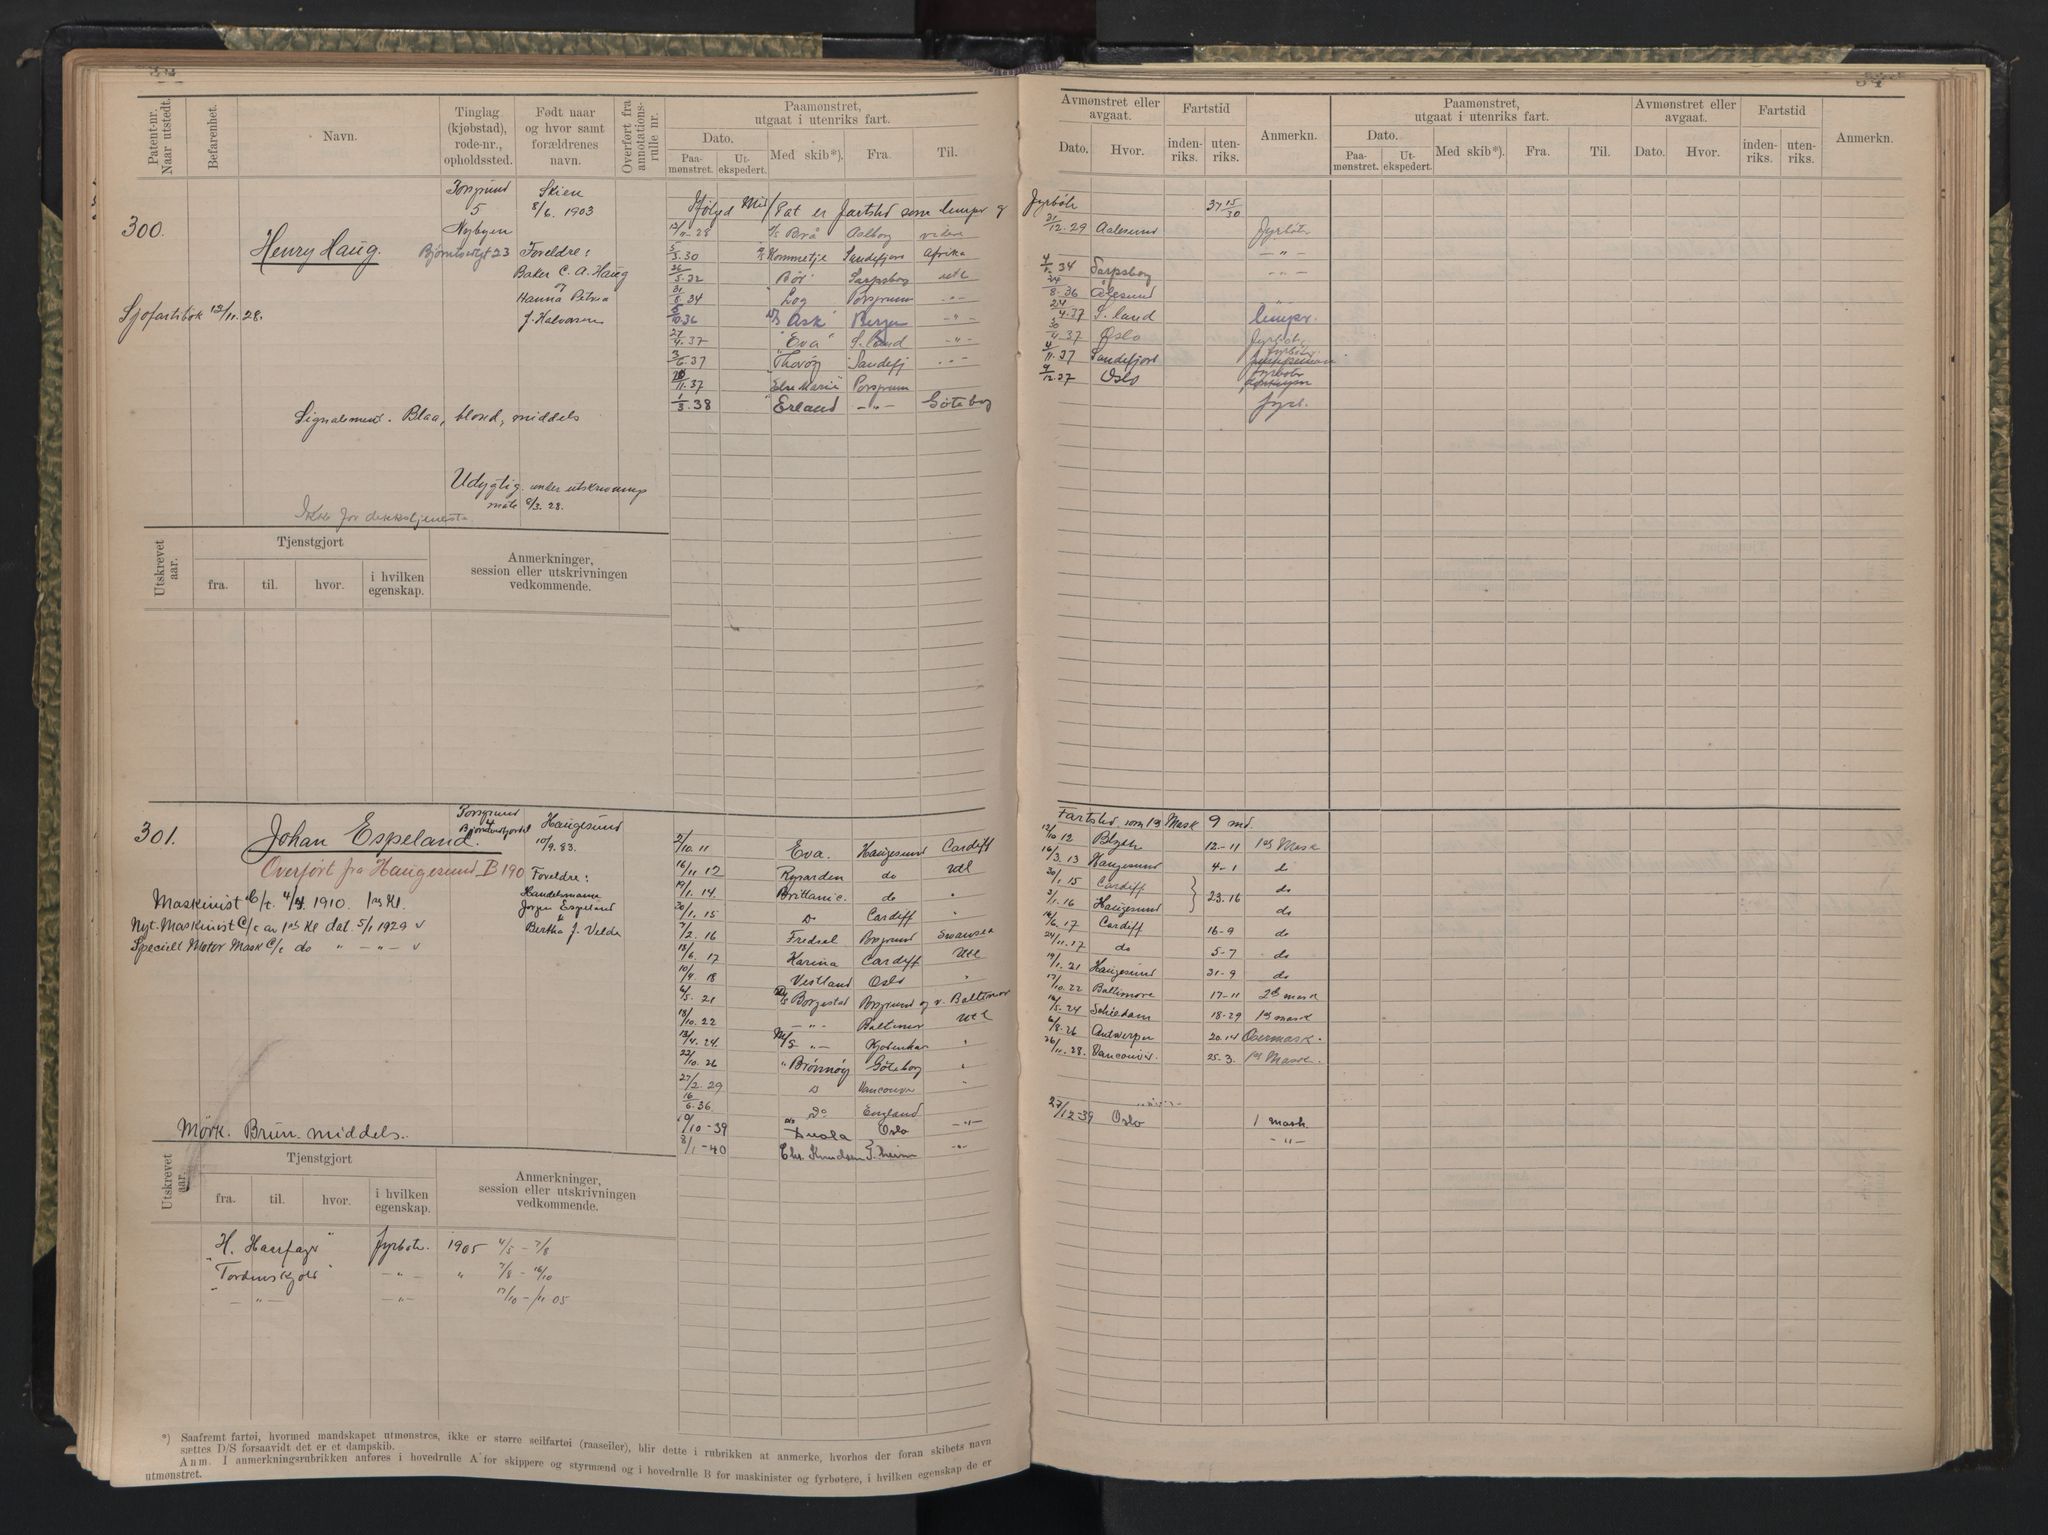 Patent-nr. Naar utstedt.
Befarenhet.
Navn.
Tinglag (kjøbstad), rode-nr., opholdssted.
Født naar og hvor samt forældrenes navn.
Overført fra annotations-rulle nr.
Paamønstret, utgaat i utenriks fart.
Dato.
Paa-mønstret.
Ut-ekspedert.
Med skib*).
Fra.
Til.
Avmønstret eller avgaat.
Dato.
Hvor.
Fartstid
inden-riks.
uten-riks.
Anmerkn.
Paamønstret, utgaat i utenriks fart.
Dato.
Paa-mønstret.
Ut-ekspedert.
Med skib*).
Fra.
Til.
Avmønstret eller avgaat.
Dato.
Hvor.
Fartstid
inden-riks.
uten-riks.
Anmerkn.
300.
Henry Haug.
Porsgrund
5
Nybyen
Skien
8/6. 1903
Foreldre:
Baker C. A. Haug
og
Hanna Petrea
J. Halvorsen
Sjøfartsbok 12/11. 28.
Signalement. Blaa, blond, middels
Udygtig under utskrivnings
møte 8/3. 28.
Ikke for dekkstjeneste
12/11. 28 Brå Aalborg videre
5/3. 30 Kommetje Sandefjord Afrika
26/5. 32 "Bör" Sarpsborg utl
31/8. 34 Log Porsgrunn -"-
5/10. 36 D/S "Ask" Bergen -"-
27/4. 37 "Eva" S. land -"-
3/6. 37 "Thorøy" Sandefj -"-
20/11. 37 "Else Marie" Porsgrunn
1/3. 38 "Erland" -"- Göteborg
Fyrbøter 37 15/30
31/12. 29 Aalesund Fyrbøter
-"-
4/5. 34 Sarpsborg -"-
24/8. 36 Ålesund
24/4. 37 S. land lemper.
30/4. 37 Oslo Fyrbøt.
4/11. 37 Sandefjord fyrbøter
9/12. 37 Oslo fyrbøter
fyrb.
Utskrevet aar.
Tjenstgjort
fra.
til.
hvor.
i hvilken egenskap.
Anmerkninger, session eller utskrivningen vedkommende.
301.
Johan Espeland.
Porsgrund
Haugesund
10/9. 83.
Overført fra Haugesund B 190
Foreldre:
Handelsmann
Jørgen Espeland
Bertha J. Velde
Maskinist C/c. 4/4 1910. 1ste Kl.
Nyt. Maskinist C/c av 1ste Kl dat. 5/1 1929 v
Speciell Motor Mask C/c do " -"- v
Mørk. Brun. middels.
2/10. 11 Eva. Haugesund Cardiff
16/11 12 Ryvarden do Utl
19/1. 14. Brittanic. do "
30/1. 15 Do Cardiff "
2/2. 16 Fredsel Porsgrund Swansea
18/6. 17 Karina Cardiff Utl
10/4. 18 Vestland Oslo "
6/5. 21 Borgestad Porsgrund og v. Baltimor
18/10. 22 -"- Baltimor Utl
13/4. 24. M/S -"- Kjøbenhav "
22/10. 26 " Brönnöy Göteborg "
27/2. 29 D Vancouver "
16/6. 36 Do England
10/10 -39 Oslo -"-
8/1 -40 Chr. Knudsen -"-
Fartstid som 1ste Mask 9 md.
12/10 12 Blyth 12-11 1ste Mask
16/3. 13 Haugesund 4-1 do
30/1. 15 Cardiff 23.16 do
3/1. 16 Haugesund do
14/6. 17 Cardiff 16-9 do
24/11. 17 do 5-7 do
19/1. 21 Haugesund 31-9 do
17/10. 22 Baltimore 17-11 2den mask
16/5. 24 Schiedam 18-29 1ste mask
6/8. 26 Antwerpen 20.14 Overmask.
26/11. 28. Vancouver. 25-3. 1ste Mask.
27/12-39 Oslo 1 mask
-"-
Utskrevet aar.
Tjenstgjort
fra.
til.
hvor.
i hvilken egenskap.
Anmerkninger, session eller utskrivningen vedkommende.
"H. Harfagr" Fyrbøter. 1905 4/5 - 7/8
"Tordenskjold" -"- " 7/8 - 16/10
-"- -"- 17/10 - /11 05
*) Saafremt fartøi, hvormed mandskapet utmønstres, ikke er større seilfartøi (raaseiler), blir dette i rubrikken at anmerke, hvorhos der foran skibets navn
sættes D/S forsaavidt det er et dampskib.
Anm. I anmerkningsrubrikken anføres i hovedrulle A for skippere og styrmænd og i hovedrulle B for maskinister og fyrbøtere, i hvilken egenskap de er
utmønstret.